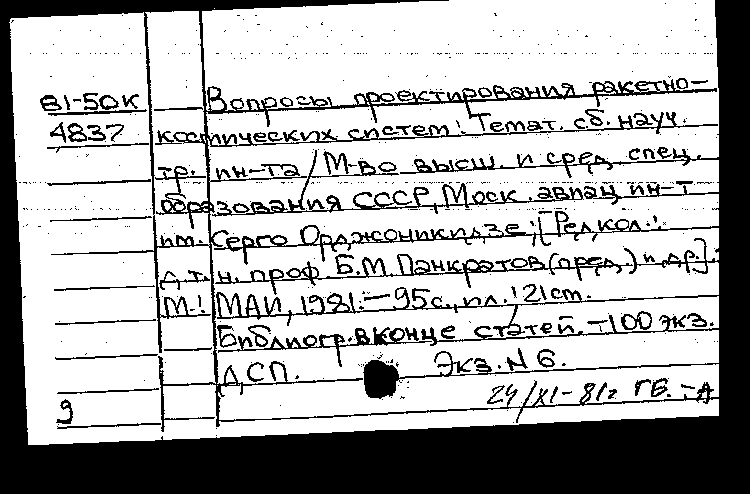 81-50к Вопросы проектирования ракетно-
4837 космических систем: Темат. сб. науч.
тр. ин-та / М-во высш. и сред. спец.
образования СССР, Моск. авиац. ин-т
им. Серго Орджоникидзе; [Редкол.:
д.т.н. проф. Б.М. Панкратов (пред.) и др.].-
М.: МАИ, 1981.-95с., ил.; 21см.
Библиогр. в конце статей. -100 экз.
ДСП. Экз. N 6.
24/XI-81г ГБ.-А
9